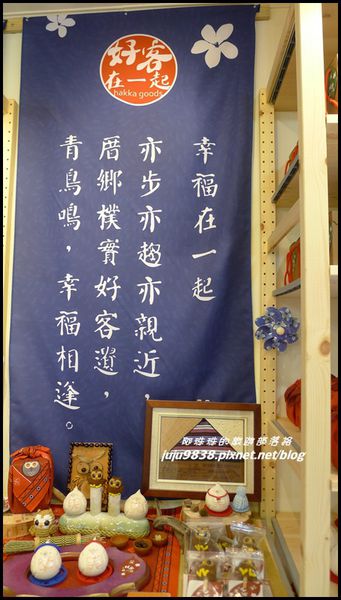 好客
在一起
hakka goods
幸福在一起
亦步亦趨亦親近，
厝鄉樸實好客邀，
青鳥鳴，幸福相逢。
juju9838.pixnet.net/blog